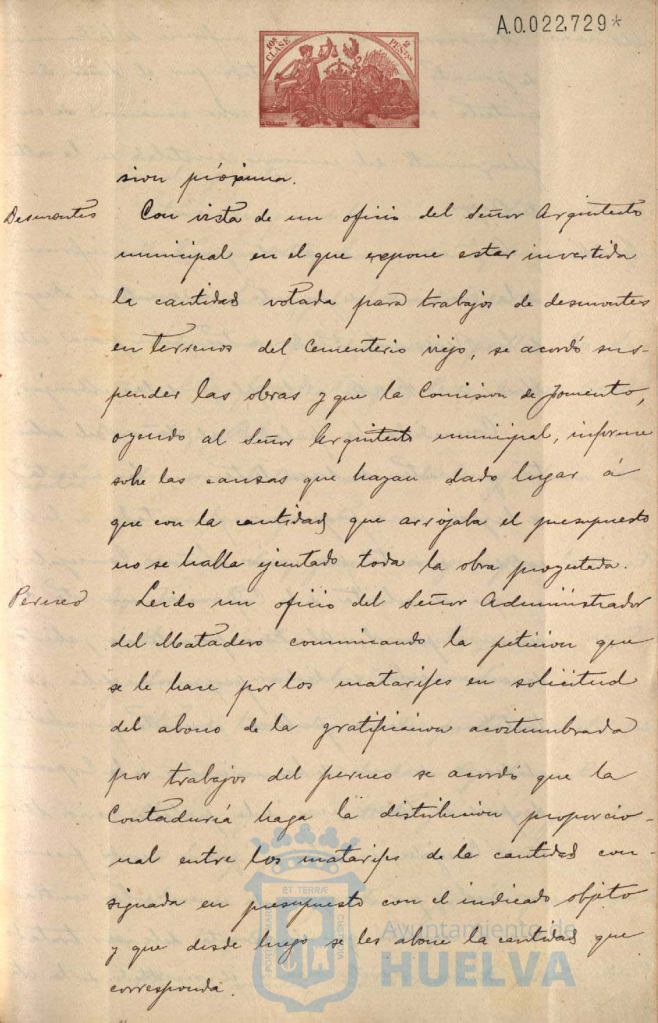 A.0.022,729*
10ª CLASE
2 PESETAS
sion próxima.
Desmontes
Con vista de un oficio del Señor Arquitecto
municipal en el que expone estar invertida
la cantidad votada para trabajos de desmontes
en terrenos del Cementerio viejo, se acordó sus-
pender las obras y que la Comision de Fomento,
oyendo al Señor Arquitecto municipal, informe
sobre las causas que hayan dado lugar á
que con la cantidad que arrojaba el presupuesto
no se halla ejecutado toda la obra proyectada.
Perneo
Leido un oficio del Señor Administrador
del Matadero comunicando la peticion que
se le hace por los matarifes en solicitud
del abono de la gratificacion acostumbrada
por trabajos del perneo se acordó que la
Contaduría haga la distribucion proporcio-
nal entre los matarifes de la cantidad con-
signada en presupuesto con el indicado objeto
y que desde luego se les abone la cantidad que
corresponda.
ET TERRÆ
PORTUS MARIS
CUSTODIA
Ayuntamiento de
HUELVA